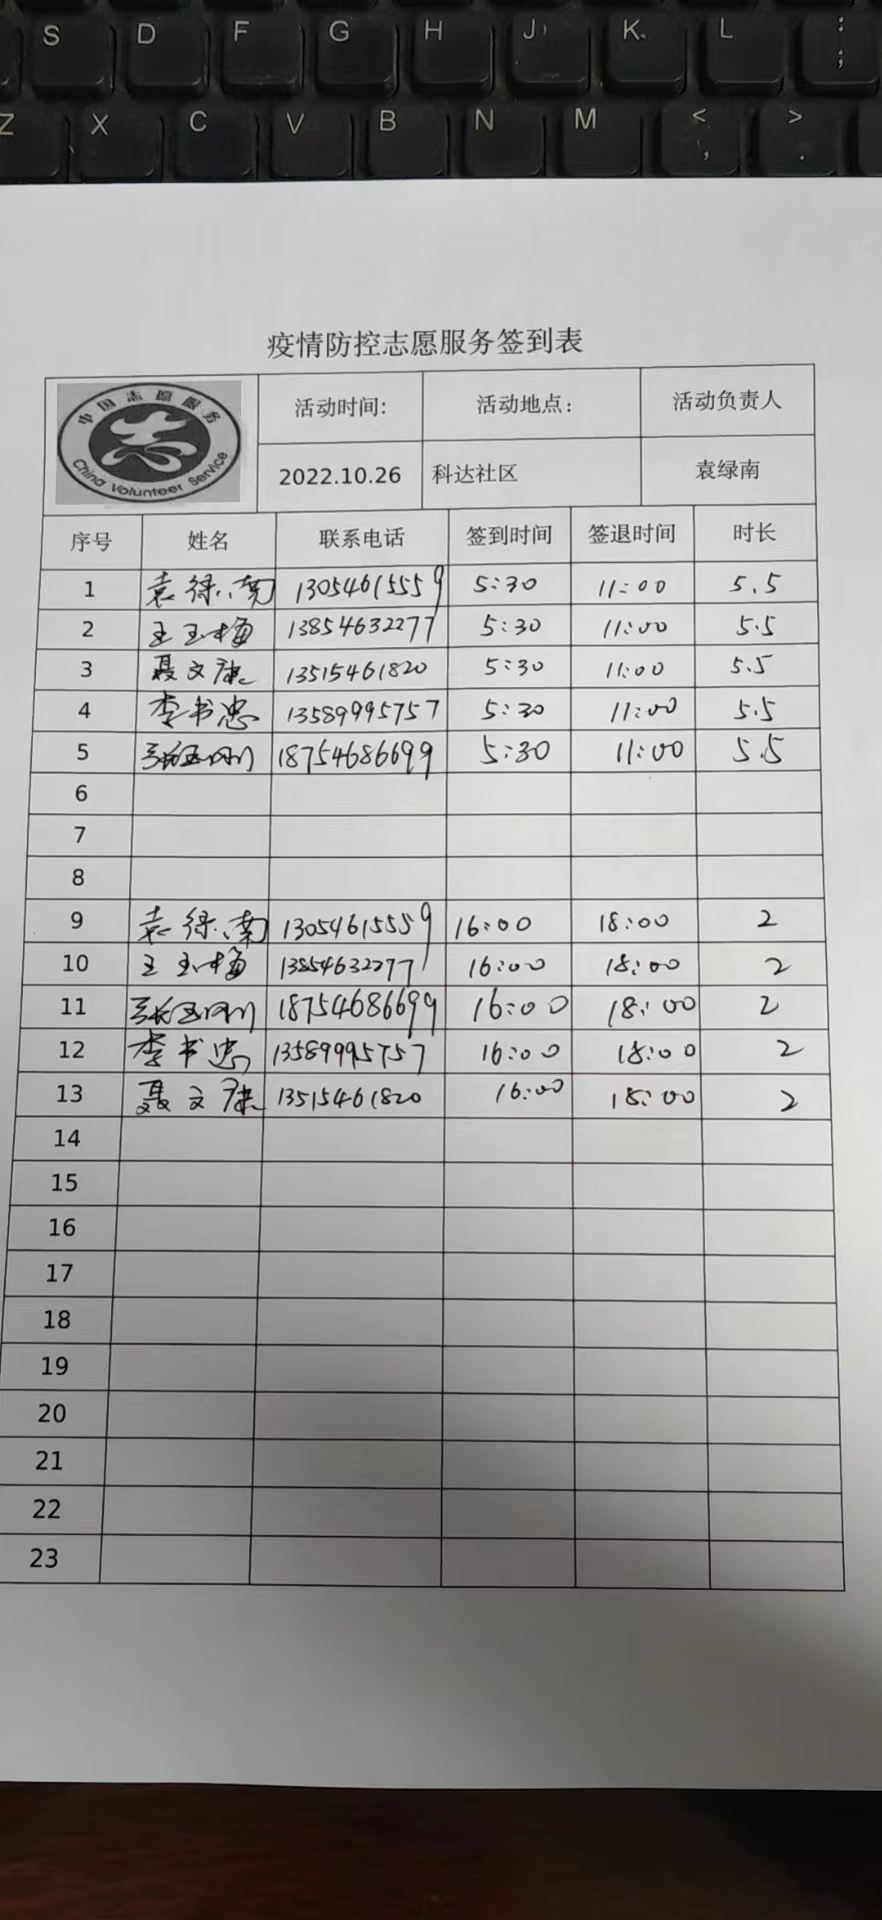 S D F G H J K L : ;
Z X C V B N M < , > .
疫情防控志愿服务签到表
中国志愿服务
China Volunteer Service
活动时间: 活动地点: 活动负责人
2022.10.26 科达社区 袁绿南
序号 姓名 联系电话 签到时间 签退时间 时长
1 袁绿南 13054615559 5:30 11:00 5.5
2 王玉梅 13854632277 5:30 11:00 5.5
3 聂文康 13515461820 5:30 11:00 5.5
4 李书忠 13589995757 5:30 11:00 5.5
5 18754686699 5:30 11:00 5.5
6
7
8
9 袁绿南 13054615559 16:00 18:00 2
10 王玉梅 13854632277 16:00 18:00 2
11 18754686699 16:00 18:00 2
12 李书忠 13589995757 16:00 18:00 2
13 聂文康 13515461820 16:00 18:00 2
14
15
16
17
18
19
20
21
22
23